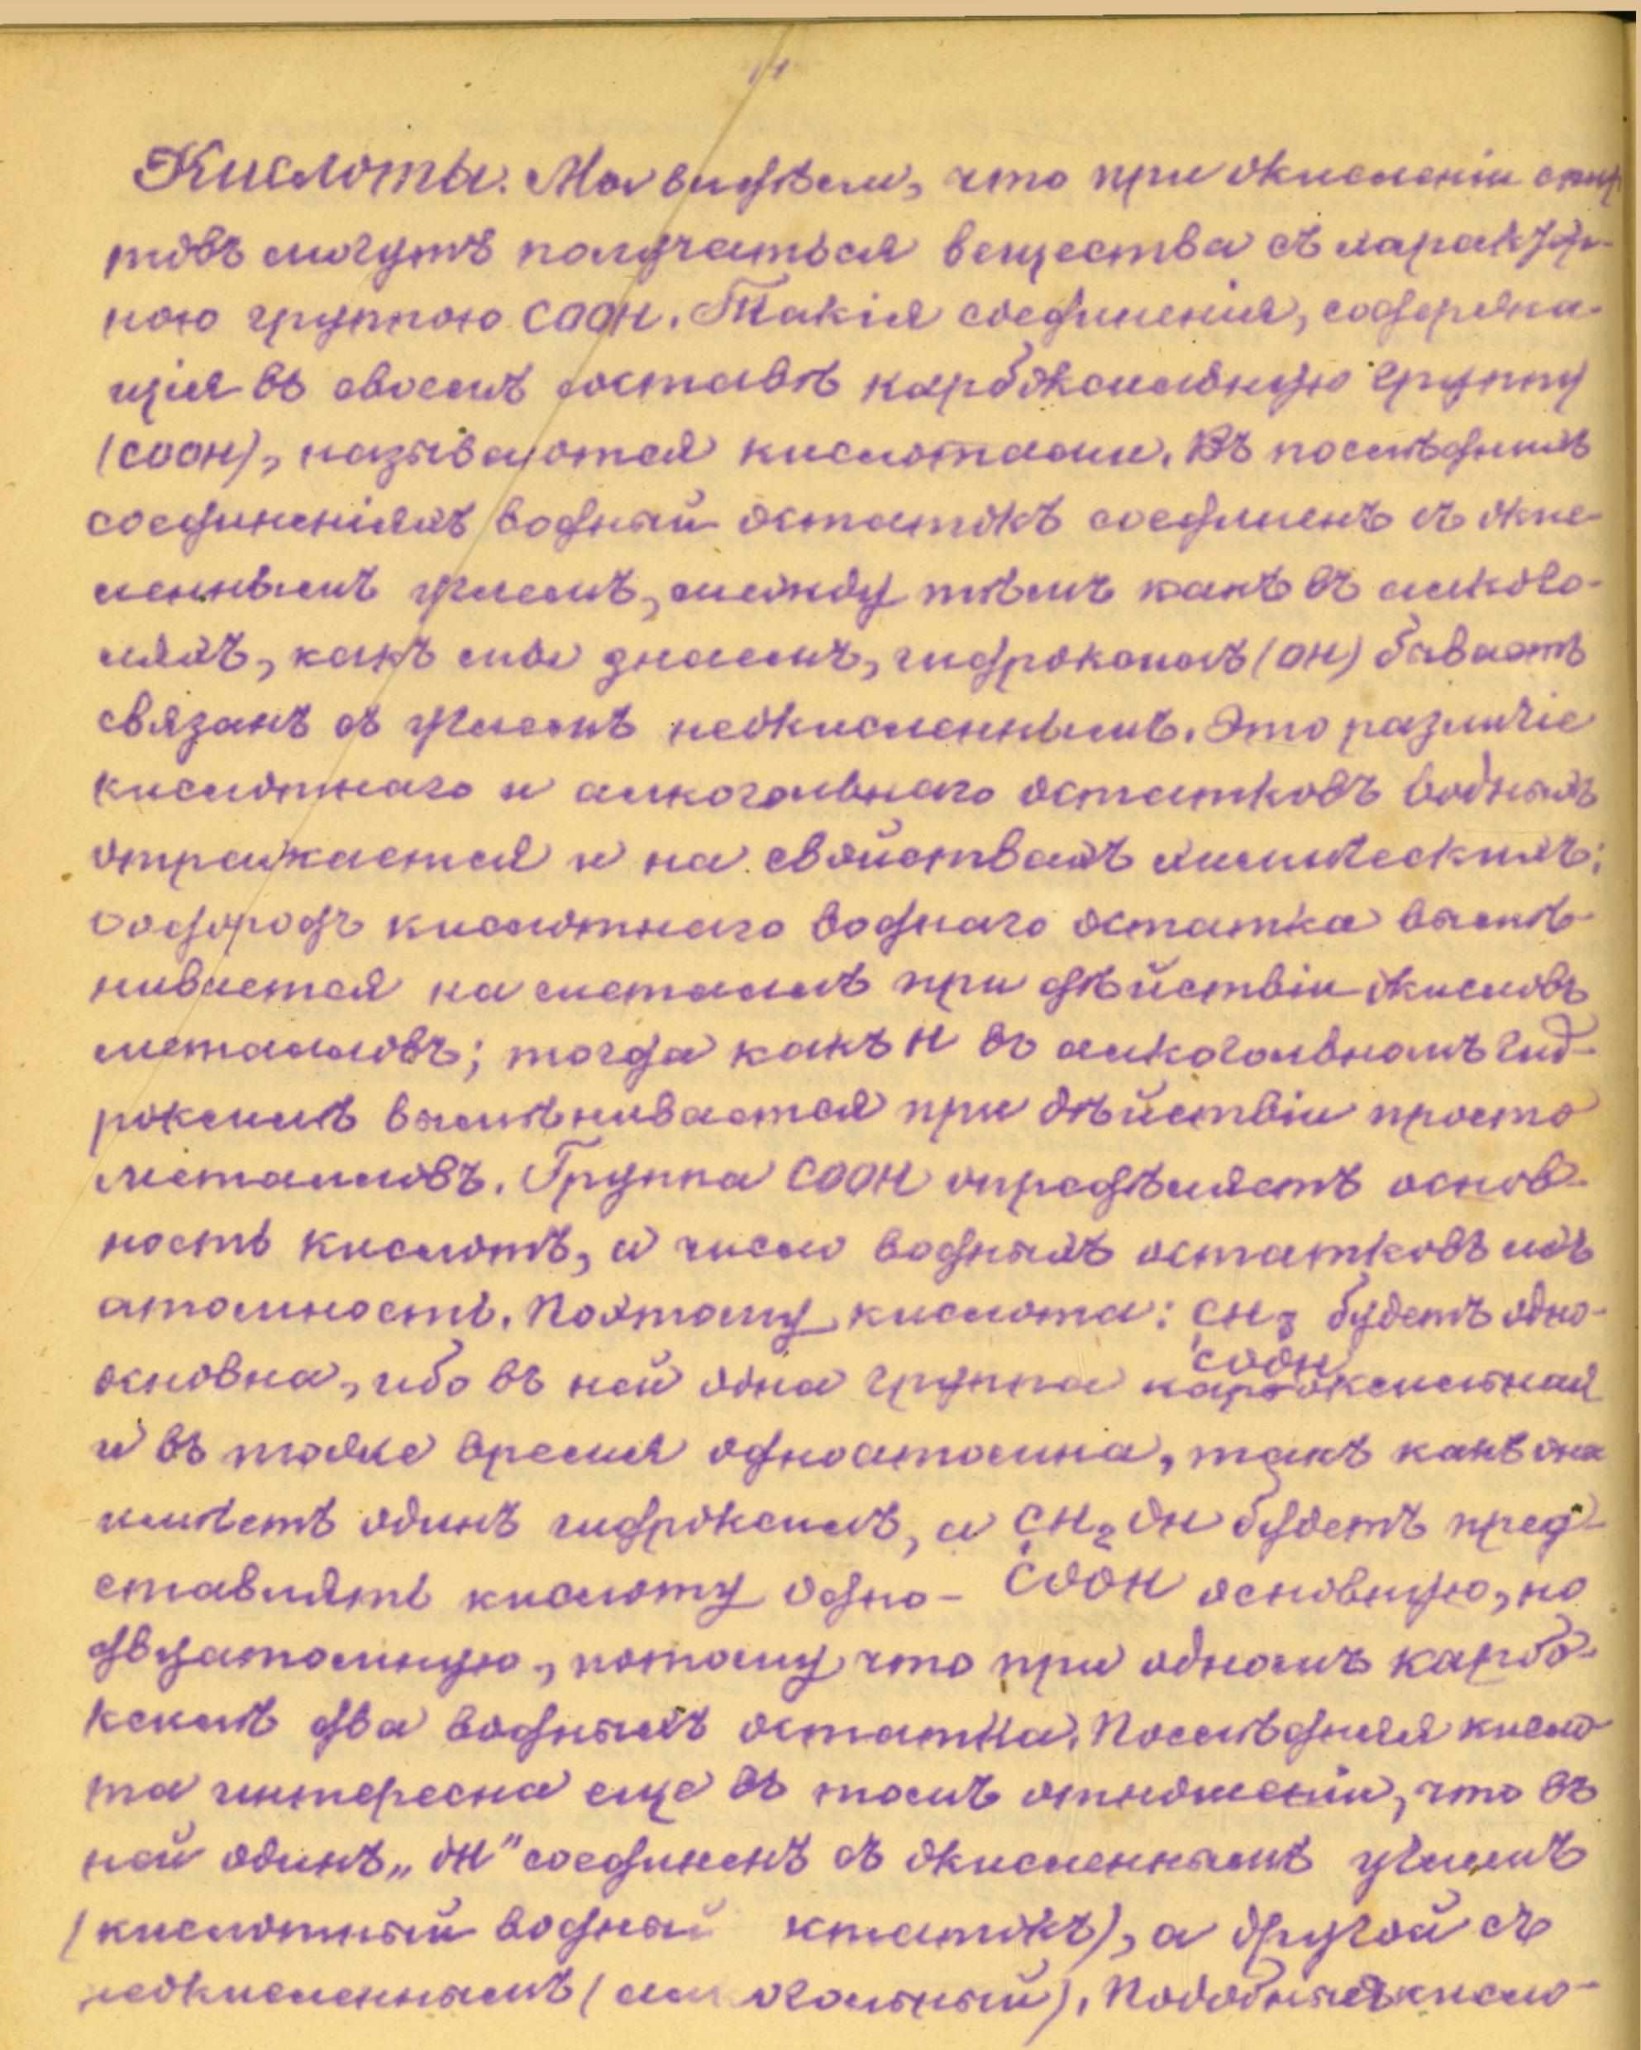 11
Кислоты. Мы видѣли, что при окисленіи спир-
товъ могутъ получаться вещества съ характер-
ною группою COOH. Такія соединенія, содержа-
щія въ своемъ составѣ карбоксильную группу
(COOH), называются кислотами. Въ послѣднихъ
соединеніяхъ водный остатокъ соединенъ съ окис-
леннымъ углемъ, между тѣмъ какъ въ алкого-
ляхъ, какъ мы знаемъ, гидроксилъ (OH) бываетъ
связанъ съ углемъ неокисленнымъ. Это различіе
кислотнаго и алкогольнаго остатковъ водныхъ
отражается и на свойствахъ химическихъ:
водородъ кислотнаго воднаго остатка вымѣ-
нивается на металлъ при дѣйствіи окисловъ
металловъ; тогда какъ H въ алкогольномъ гид-
роксилѣ вымѣнивается при дѣйствіи просто
металловъ. Группа COOH опредѣляетъ основ-
ность кислотъ, а число водныхъ остатковъ ихъ
атомность. Поэтому кислота: CH3 будетъ одно-
COOH
основна, ибо въ ней одна группа карбоксильная
и въ тоже время одноатомна, такъ какъ она
имѣетъ одинъ гидроксилъ, а CH2OH будетъ пред-
ставлять кислоту одно- COOH основную, но
двуатомную, потому что при одномъ карбо-
ксилѣ два водныхъ остатка. Послѣдняя кисло-
та интересна еще въ томъ отношеніи, что въ
ней одинъ „OH" соединенъ съ окисленнымъ углемъ
(кислотный водный остатокъ), а другой съ
неокисленнымъ (алкогольный). Подобныя кисло-